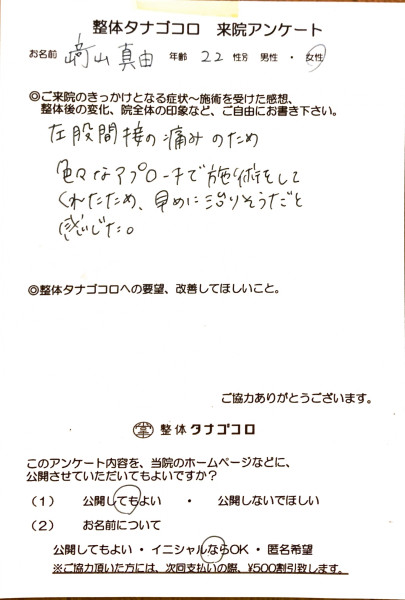 整体タナゴコロ　来院アンケート
お名前 﨑山真由 年齢 22 性別 男性 ・ 女性
◎ご来院のきっかけとなる症状～施術を受けた感想、
整体後の変化、院全体の印象など、ご自由にお書き下さい。
左股間接の痛みのため
色々なアプローチで施術をして
くれたため、早めに治りそうだと
感じた。
◎整体タナゴコロへの要望、改善してほしいこと。
ご協力ありがとうございます。
掌 整体タナゴコロ
このアンケート内容を、当院のホームページなどに、
公開させていただいてもよいですか？
（1） 公開してもよい ・ 公開しないでほしい
（2） お名前について
公開してもよい ・ イニシャルならOK ・ 匿名希望
※ご協力頂いた方には、次回支払いの際、¥500割引致します。